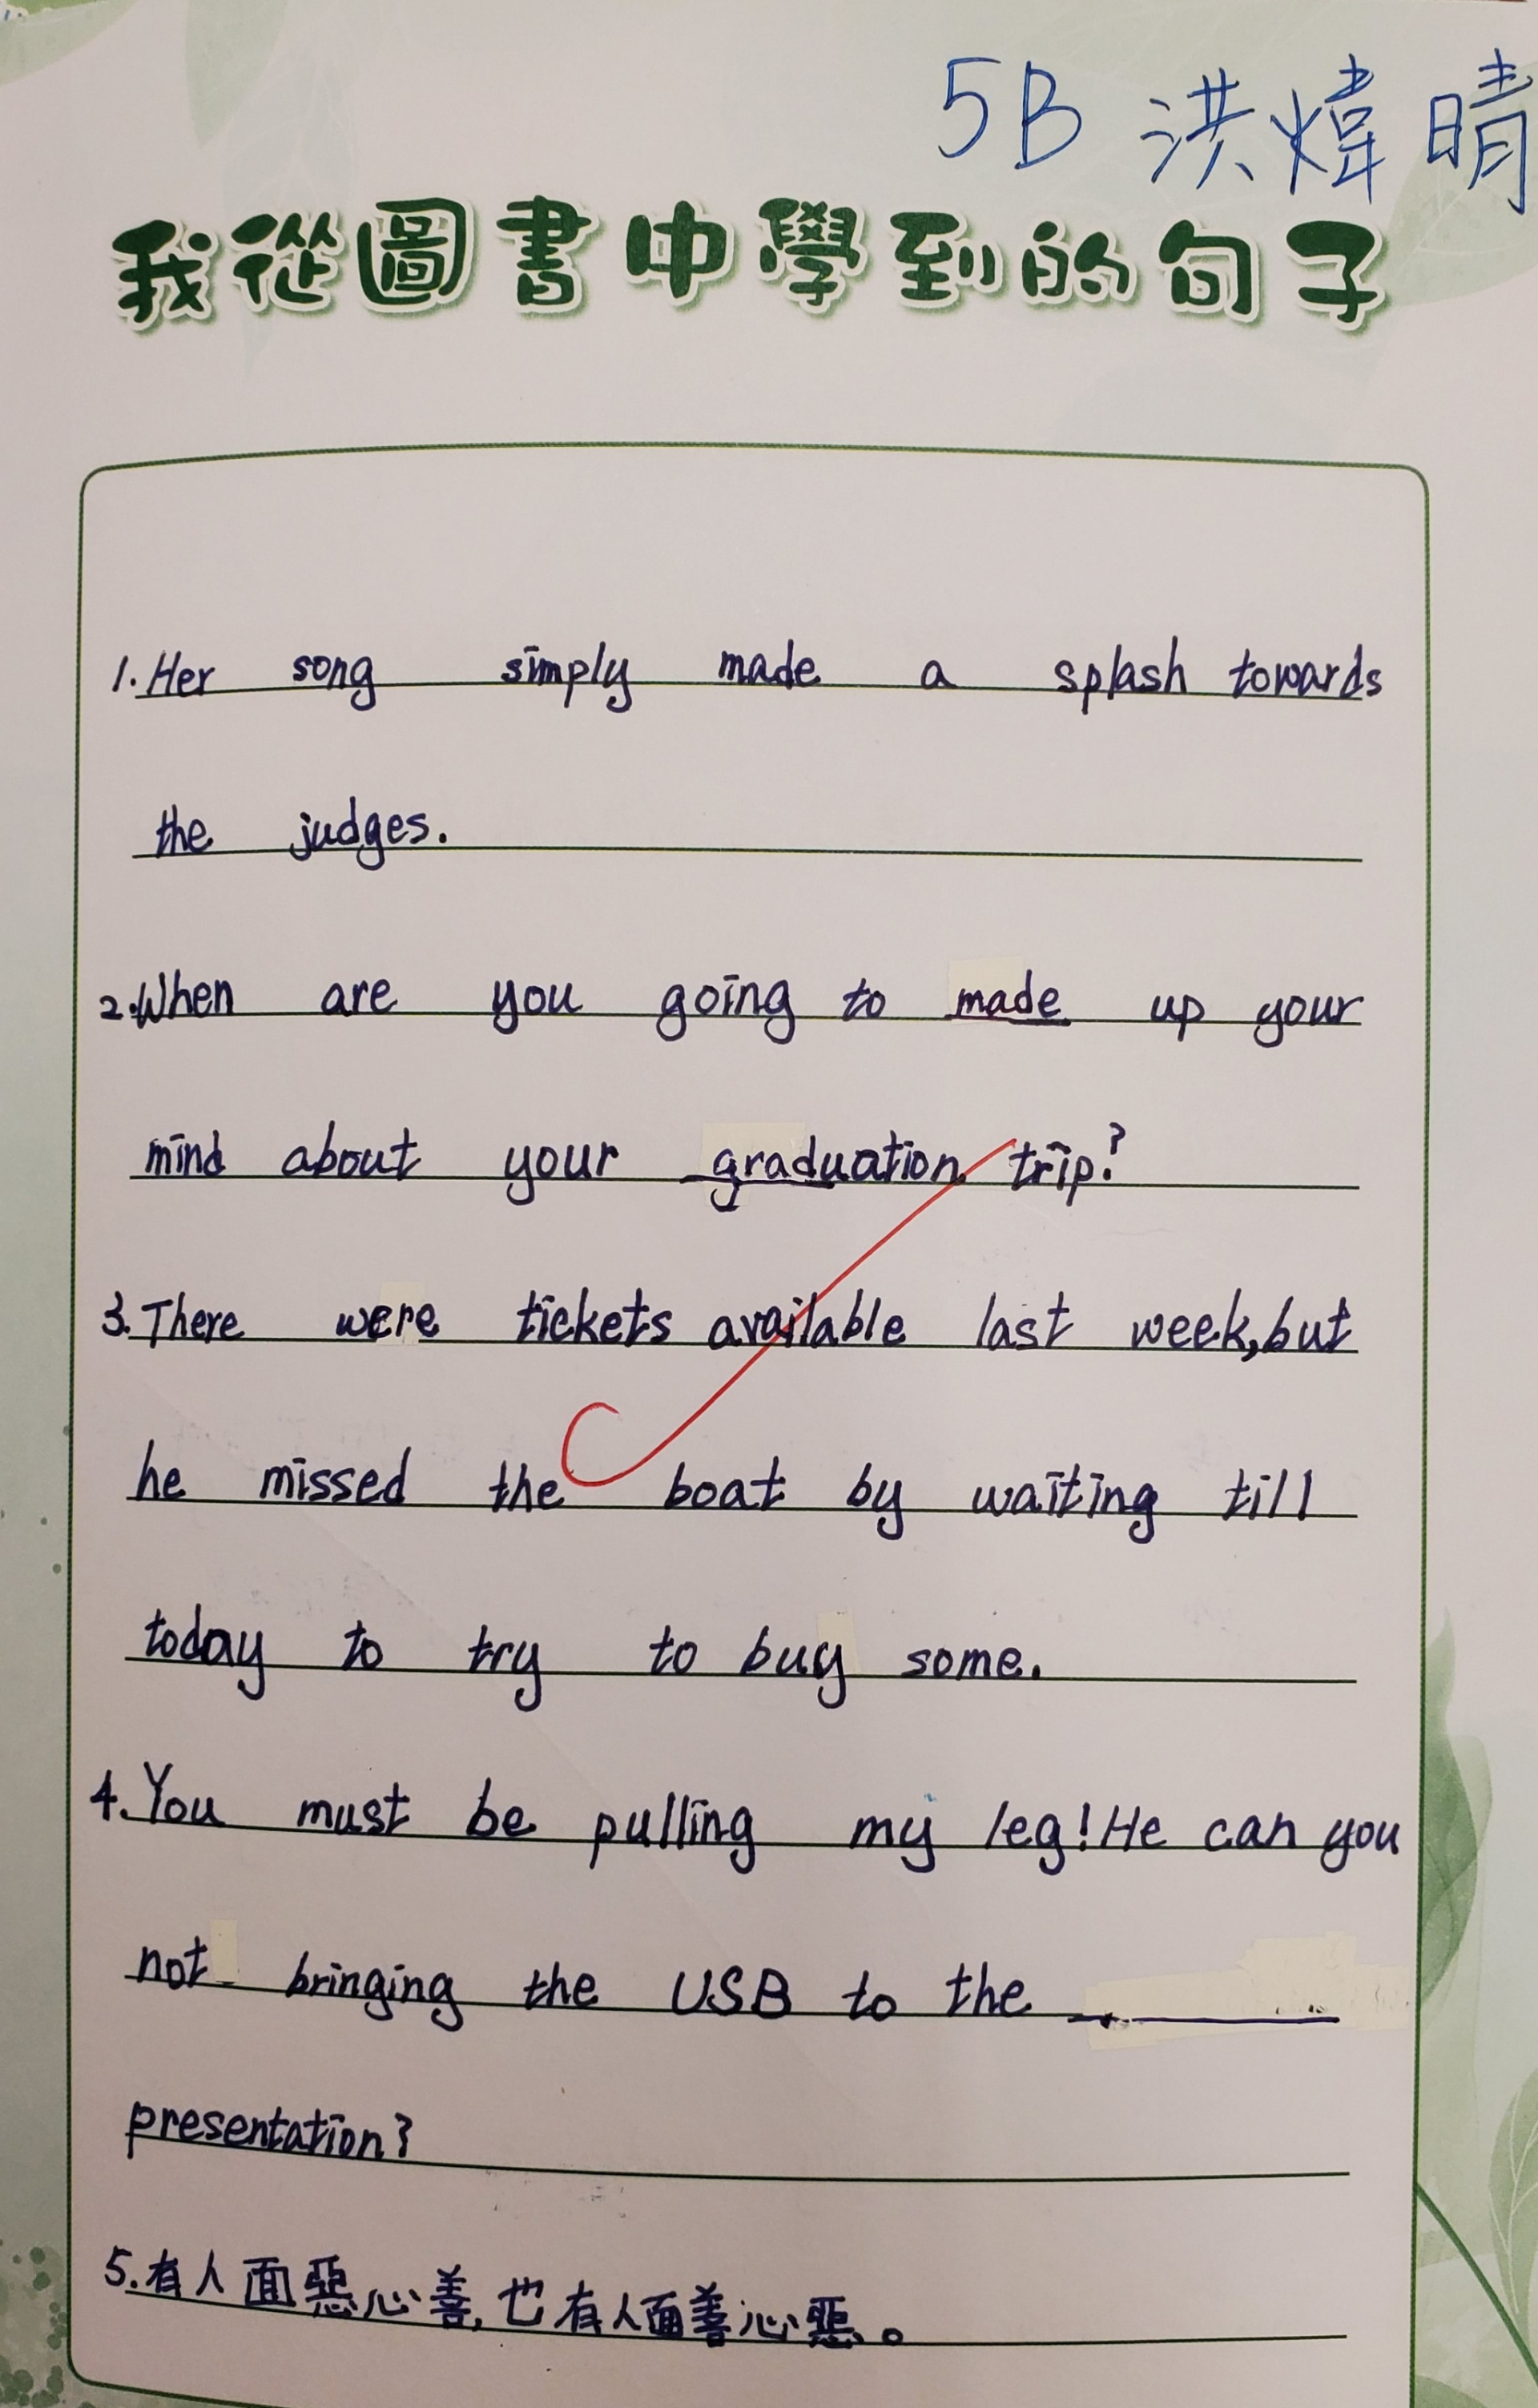 5B 洪煒晴
我從圖書中學到的句子
1. Her song simply made a splash towards
the judges.
2. When are you going to made up your
mind about your graduation trip?
3. There were tickets available last week, but
he missed the boat by waiting till
today to try to buy some.
4. You must be pulling my leg! He can you
not bringing the USB to the
presentation?
5. 有人面惡心善, 也有人面善心惡。